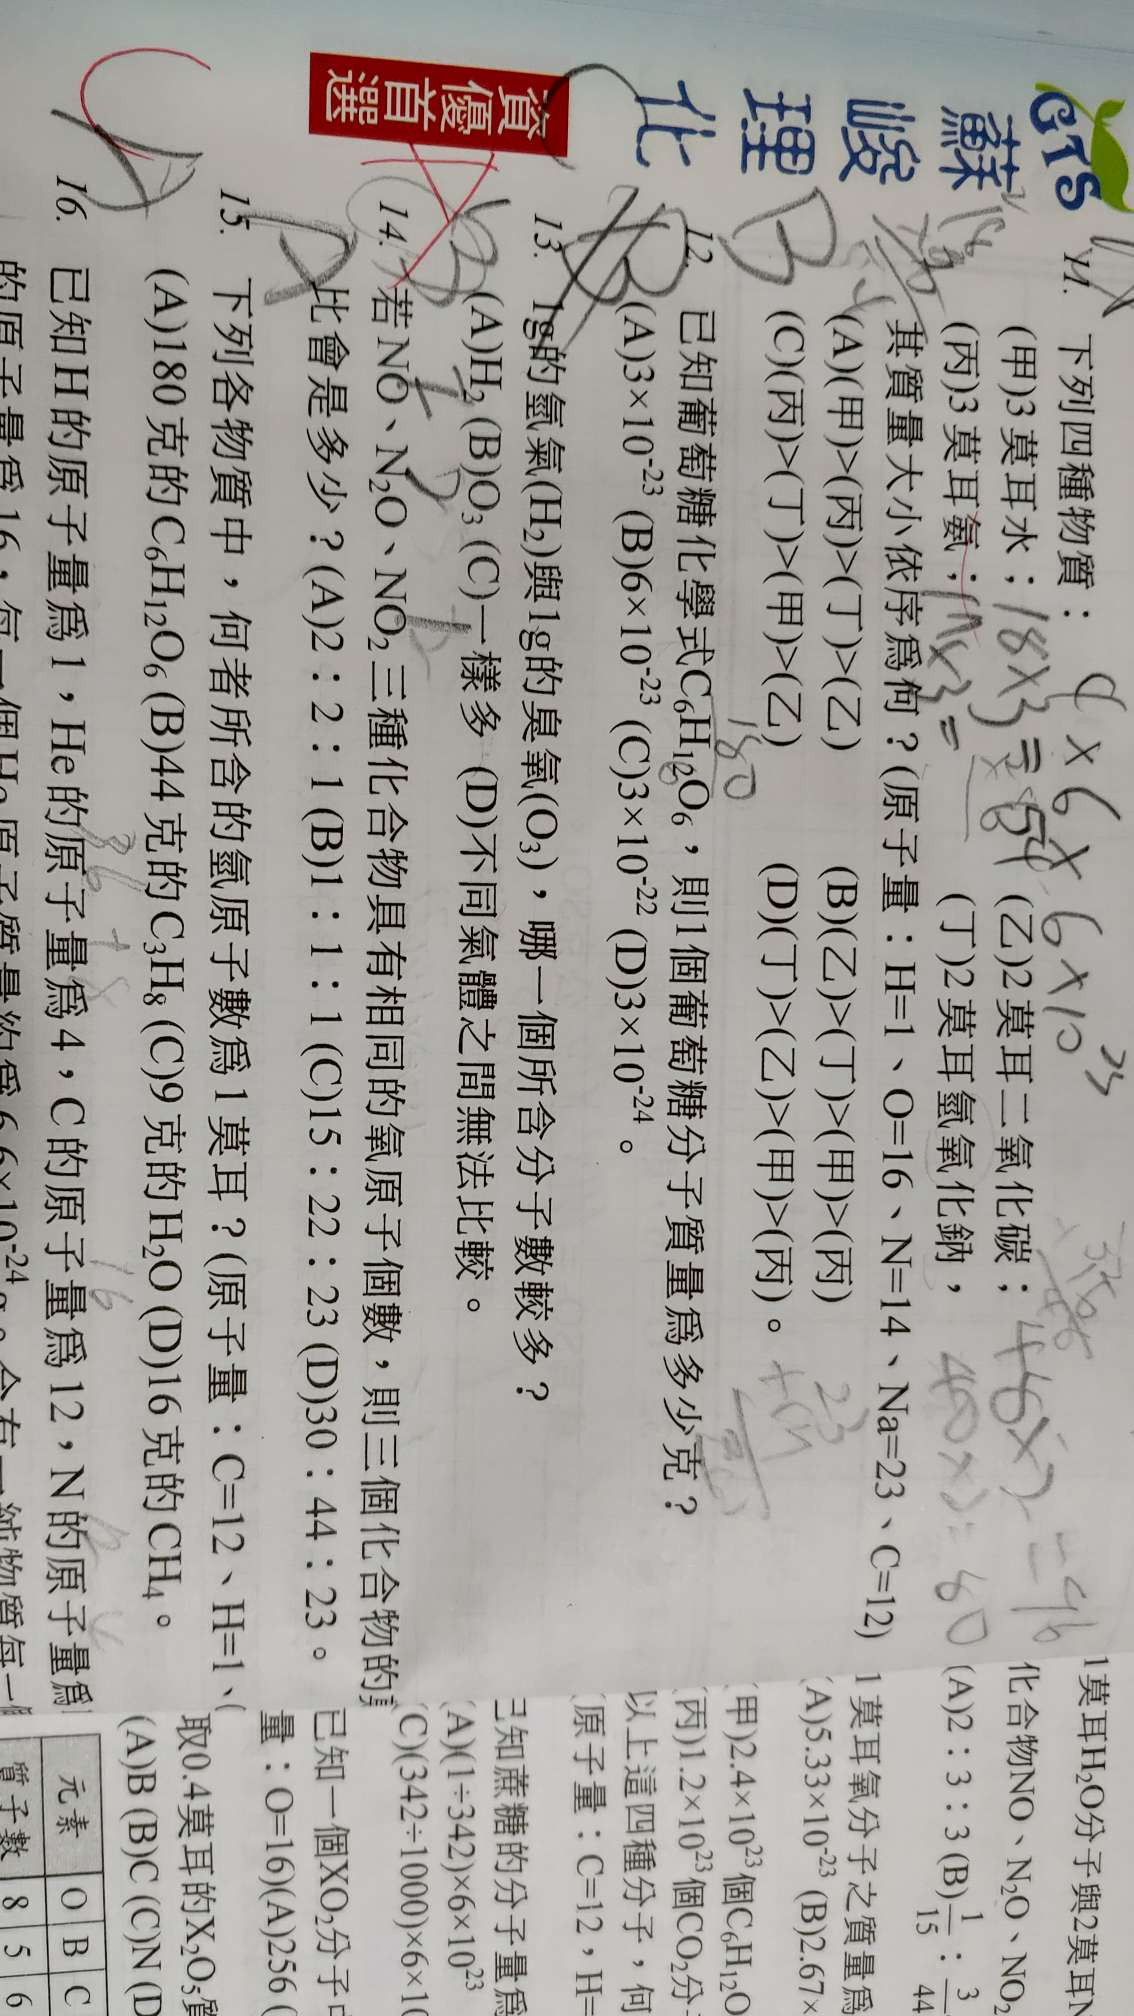 GTS
蘇
峻
理
化
資
優
首
選
11. 下列四種物質：
(甲)3莫耳水； (乙)2莫耳二氧化碳；
(丙)3莫耳氨； (丁)2莫耳氫氧化鈉，
其質量大小依序為何？(原子量：H=1、O=16、N=14、Na=23、C=12)
(A)(甲)>(丙)>(丁)>(乙) (B)(乙)>(丁)>(甲)>(丙)
(C)(丙)>(丁)>(甲)>(乙) (D)(丁)>(乙)>(甲)>(丙)。
12. 已知葡萄糖化學式C₆H₁₂O₆，則1個葡萄糖分子質量為多少克？
(A)3×10⁻²³ (B)6×10⁻²³ (C)3×10⁻²² (D)3×10⁻²⁴。
13. 1g的氫氣(H₂)與1g的臭氧(O₃)，哪一個所含分子數較多？
(A)H₂ (B)O₃ (C)一樣多 (D)不同氣體之間無法比較。
14. 若NO、N₂O、NO₂三種化合物具有相同的氧原子個數，則三個化合物的
比會是多少？(A)2：2：1 (B)1：1：1 (C)15：22：23 (D)30：44：23。
15. 下列各物質中，何者所含的氫原子數為1莫耳？(原子量：C=12、H=1、
(A)180克的C₆H₁₂O₆ (B)44克的C₃H₈ (C)9克的H₂O (D)16克的CH₄。
16. 已知H的原子量為1，He的原子量為4，C的原子量為12，N的原子量為
的原子量為16，每一個He原子質量約為6.6×10⁻²⁴g。今有一純物質每一個
18×3=54
17×3=
40×2=80
180
B
A
1莫耳H₂O分子與2莫耳
化合物NO、N₂O、NO₂
(A)2：3：3 (B)1/15：3/44
1莫耳氧分子之質量為
(A)5.33×10⁻²³ (B)2.67×
(甲)2.4×10²³個C₆H₁₂O
(丙)1.2×10²³個CO₂分
以上這四種分子，何
(原子量：C=12，H=
已知蔗糖的分子量為
(A)(1÷342)×6×10²³
(C)(342÷1000)×6×10
已知一個XO₂分子
量：O=16)(A)256
取0.4莫耳的X₂O₅質
(A)B (B)C (C)N (D
元素 O B C
質子數 8 5 6